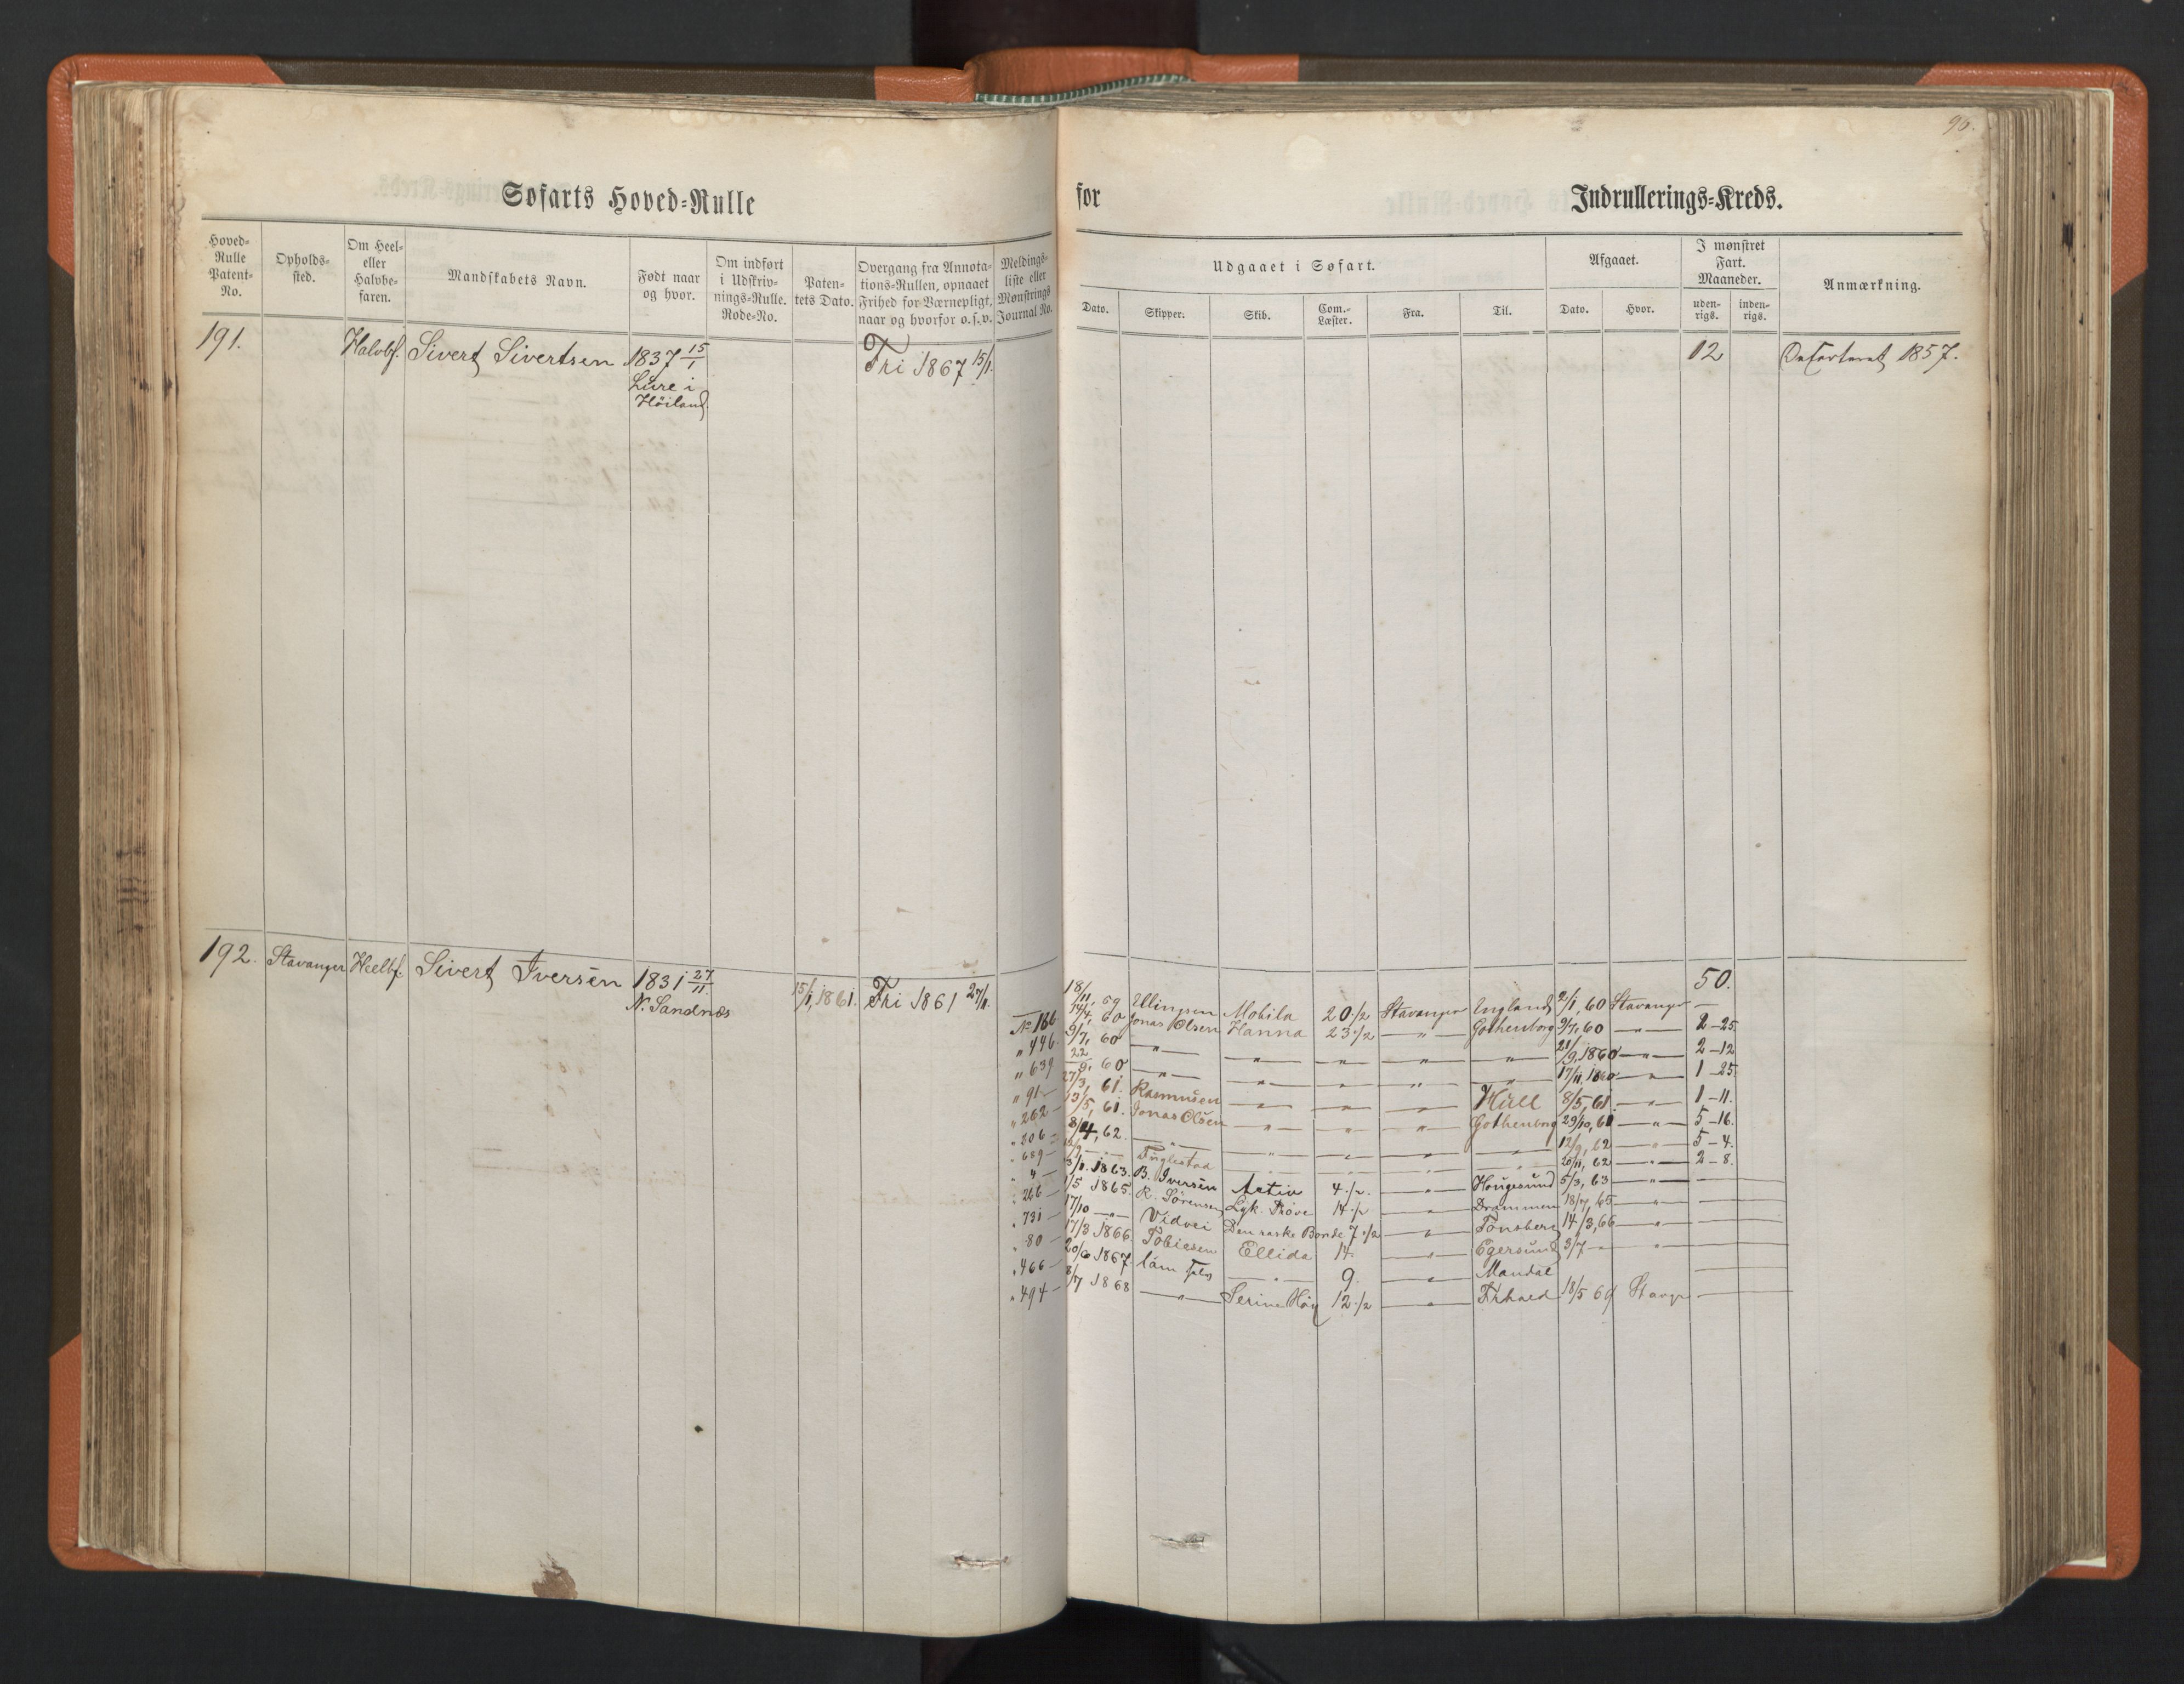 96.
Søfarts Hoved-Rulle for Indrullerings-Kreds.
Hoved-Rulle Patent-No.
Opholds-sted.
Om Heel- eller Halvbe-faren.
Mandskabets Navn.
Født naar og hvor.
Om indført i Udskriv-nings-Rulle. Rode-No.
Paten-tets Dato.
Overgang fra Annota-tions-Rullen, opnaaet Frihed for Værnepligt, naar og hvorfor o. s. v.
Meldings-liste eller Mønstrings Journal No.
Udgaaet i Søfart.
Dato. Skipper. Skib. Com.-Læster. Fra. Til.
Afgaaet.
Dato. Hvor.
I mønstret Fart. Maaneder.
uden-rigs. inden-rigs.
Anmærkning.
191. Halvbf. Sivert Sivertsen 1837 15/1 Fri 1867 15/1. 12 Deserteret 1857.
Lure i
Höiland.
192. Stavanger Heelbf. Sivert Iversen 1831 27/11. 15/1, 1861. Fri 1861 27/11. 50.
N. Sandnæs
18/11, 59 Ellingsen Mobila 20 1/2 Stavanger England 2/1, 60 Stavanger —
No 166 14/4, 60 Jonas Olsen Hanna 23 1/2 — " — Gothenborg 9/7, 60 — " — 2 - 25
" 446. 9/7, 60 — " — — " — — " — — " — — " — 21/9, 1860 — " — 2 - 12
" 639 22/9, 60 — " — — " — — " — — " — — " — 17/11, 1860 — " — 1 - 25.
" 91 — 27/3, 61. Rasmusen — " — — " — — " — Hull 8/5, 61. — " — 1 - 11.
" 262 — 13/5, 61. Jonas Olsen — " — — " — — " — Gothenborg 29/10, 61 — " — 5 - 16.
" 206 — 8/4, 62. — " — — " — — " — — " — — " — 12/9, 62 — " — 5 - 4.
" 689 — — " — Fuglestad — " — — " — — " — — " — 20/11, 62 — " — 2 - 8.
" 4 — 3/1. 1863. B. Iversen Activ 4 1/2. — " — Hougesund 5/3, 63 — " — —
" 266 — 1/5 1865. R. Sörensen Lyk. Pröve 14 1/2 — " — Drammen 18/7, 65 — " — —
" 731 — 17/10 — " — Vidvei Den raske Bonde 7 1/2 — " — Tonsberg 14/3, 66 — " — —
" 80 — 17/3 1866. Tobiesen Ellida 14. — " — Egersund 3/7 — " — —
" 466 — 20/6 1867 — " — 9. — " — Mandal —
" 494 — 8/7 1868 — " — 12 1/2 — " — 18/5 69 —